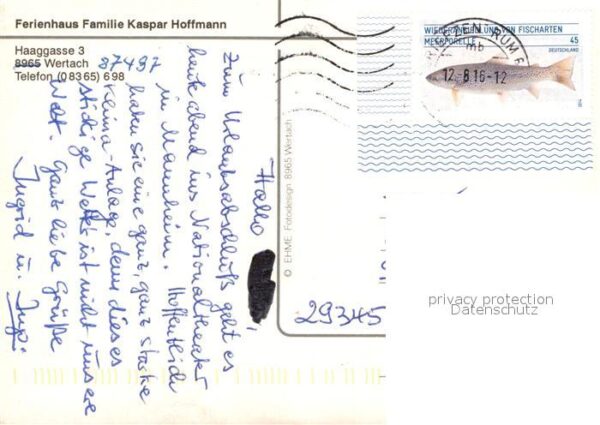 Ferienhaus Familie Kaspar Hoffmann
Haaggasse 3
8965 Wertach
87497
Telefon (0 83 65) 6 98
Hallo
Zum Urlaubsabschluß geht es
heute abend ins Nationaltheater
in Mannheim. Hoffentlich
haben sie eine ganz, ganz starke
Klima-Anlage, denn dieses
stickige Wetter ist nicht unsere
Welt. Ganz liebe Grüße
Ingrid u.
© EHME Fotodesign 8965 Wertach
WIEDERANSIEDLUNG VON FISCHARTEN
MEERFORELLE
45
DEUTSCHLAND
mb
12.8.16-12
29345
privacy protection
Datenschutz